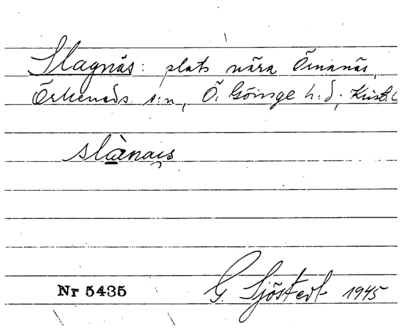 Slagnäs: plats nära Õmanäs,
Örkeneds s:n, Ö. Göinge h.d; Krist. l
slànaıs
Nr 5435 G. Sjöstedt 1945